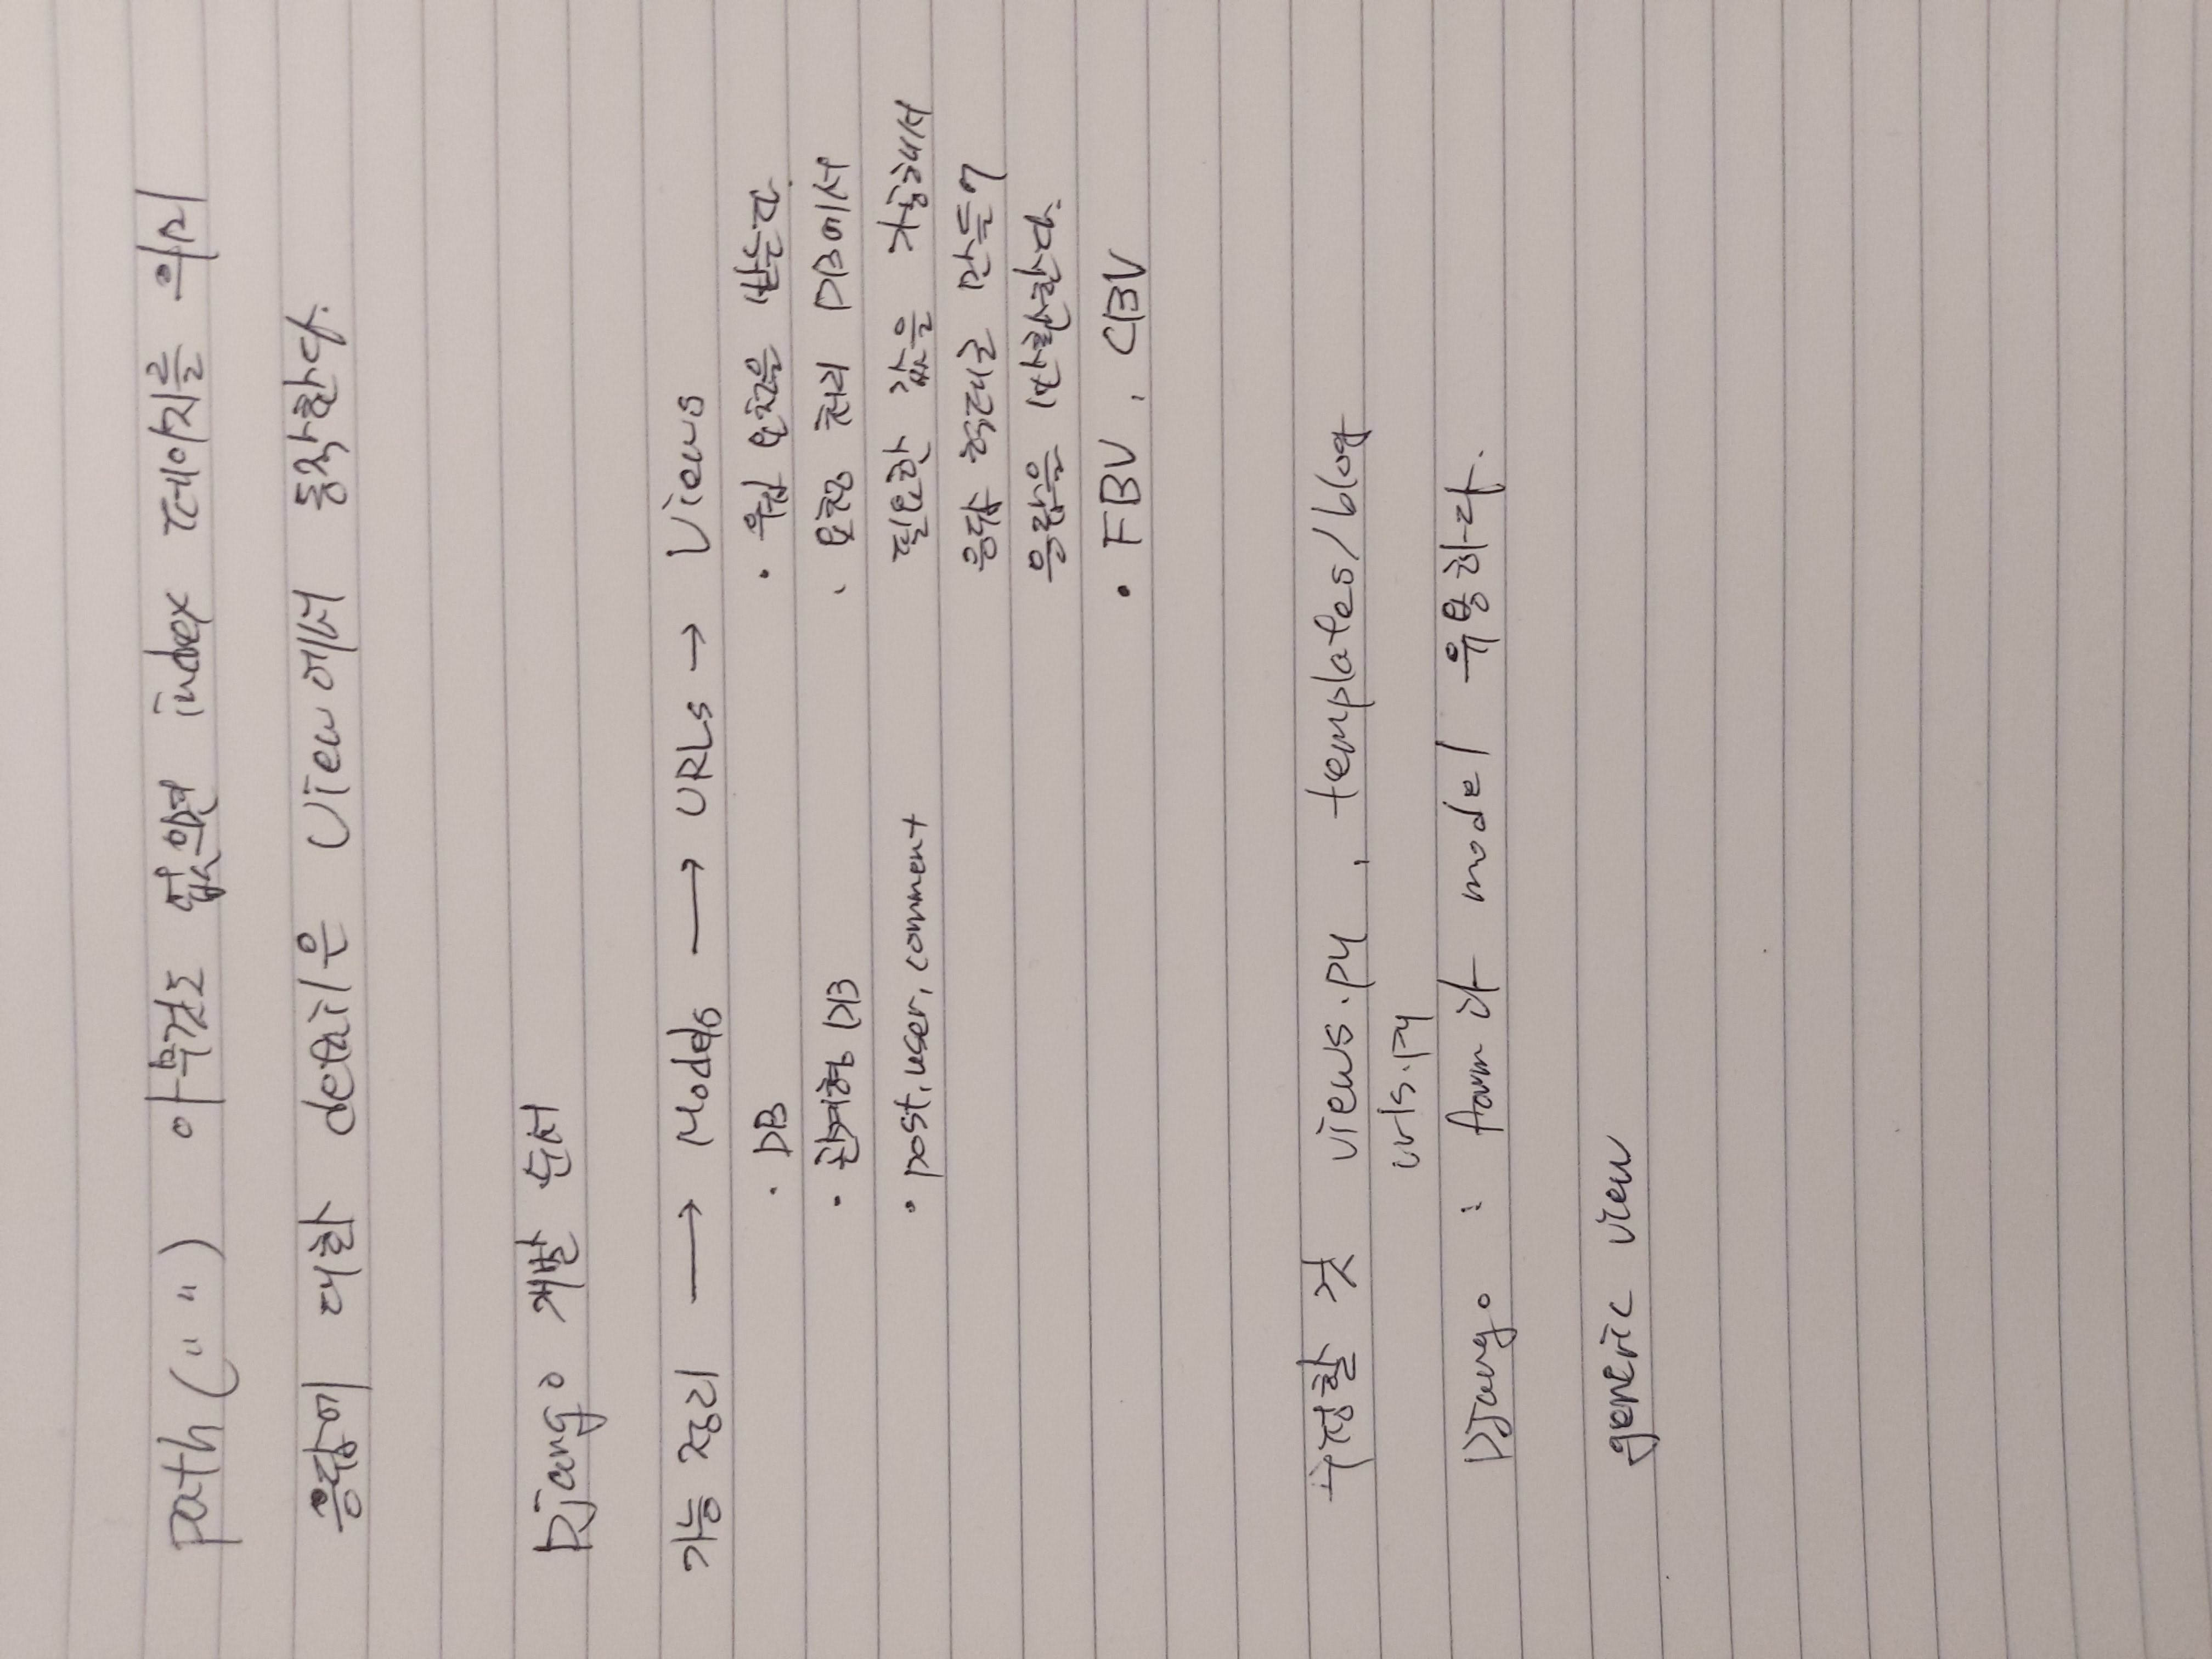 path (" ") 아무것도 없으면 index 페이지를 의미
응답에 대한 detail은 View에서 동작한다.
Django 개발 순서
기능 정리 → Models → URLs → Views
· DB · 웹 요청을 받는다.
· 관계형 DB · 요청 처리 DB에서
· post, user, comment 필요한 값을 가공해서
응답 형태로 만들어
응답을 반환한다.
· FBV , CBV
수정할 것 views.py , templates/blog
urls.py
Django : form과 model 유용하다.
generic view